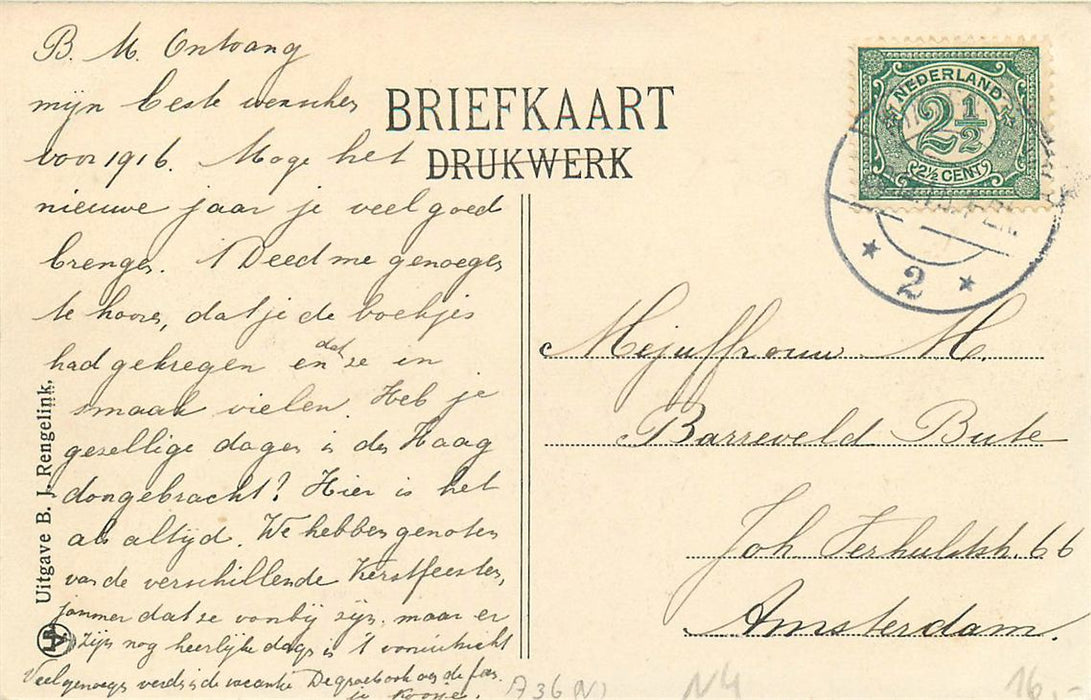 B. M. Ontvang
mijn beste wenschen
voor 1916. Moge het
nieuwe jaar je veel goed
brengen. 't Deed me genoegen
te hooren, dat je de boekjes
had gekregen en dat ze in
smaak vielen. Heb je
gezellige dagen in den Haag
doorgebracht? Hier is het
als altijd. We hebben genoten
van de verschillende Kerstfeesten,
jammer dat ze voorbij zijn, maar er
zijn nog heerlijke dagen in 't vooruitzicht
Veel genoegen verder in de vacantie De groeten ook aan de fam.
je
Uitgave B. J. Rengelink,
BRIEFKAART
DRUKWERK
NEDERLAND
2 1/2
2½ CENT
2
Mejuffrouw M.
Barreveld Bute
Joh Verhulststr. 66
Amsterdam.
A36(N)
N4
16,-